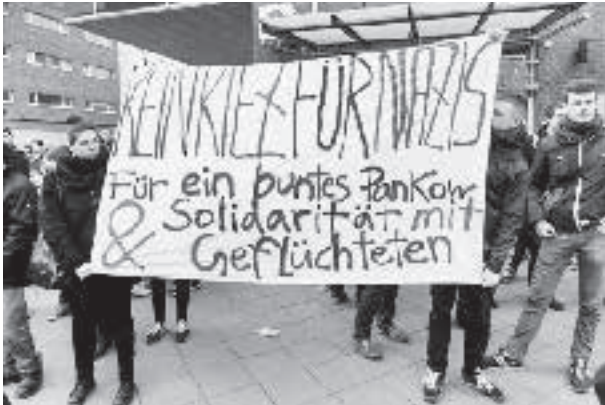 KEIN KIEZ FÜR NAZIS
Für ein buntes Pankow
& Solidarität mit
Geflüchteten